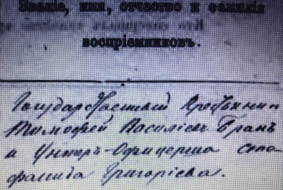 Званіе, имя, отчество и фамилія
воспріемниковъ.
Государственный Крестьянин
Тимофей Василіев
и Унтеръ-Офицерша
Григоріева.